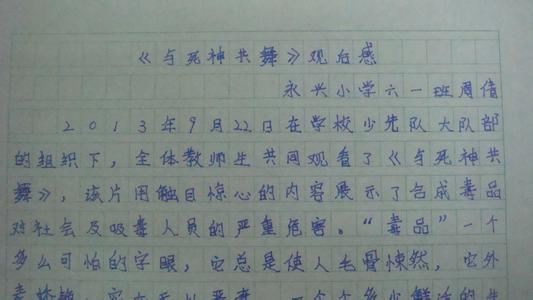 《与死神共舞》观后感
永兴小学六一班周倩
2013年9月22日在学校少先队大队部
的组织下,全体教师生共同观看了《与死神共
舞》,该片用触目惊心的内容展示了合成毒品
对社会及吸毒人员的严重危害。“毒品”一个
多么可怕的字眼,它总是使人毛骨悚然,它外